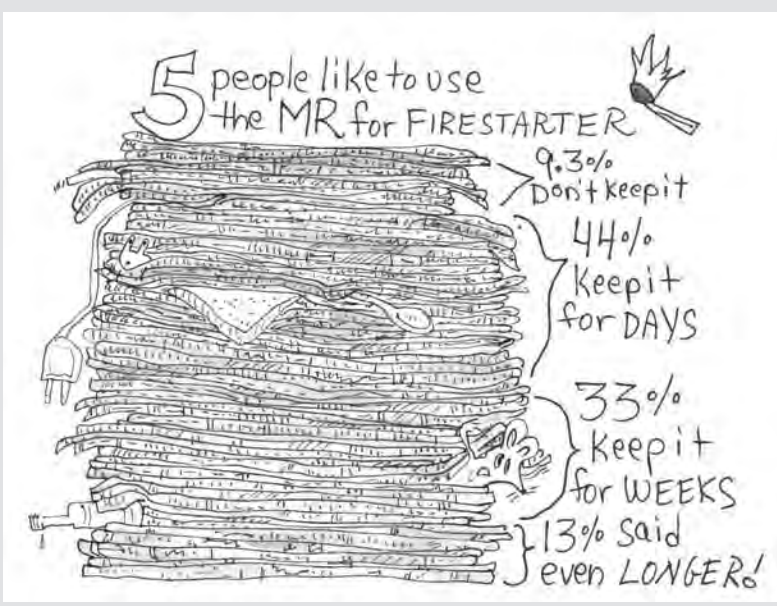 5 people like to use
the MR for FIRESTARTER
9.3%
Don't keep it
44%
Keep it
for DAYS
33%
Keep it
for WEEKS
13% said
even LONGER!